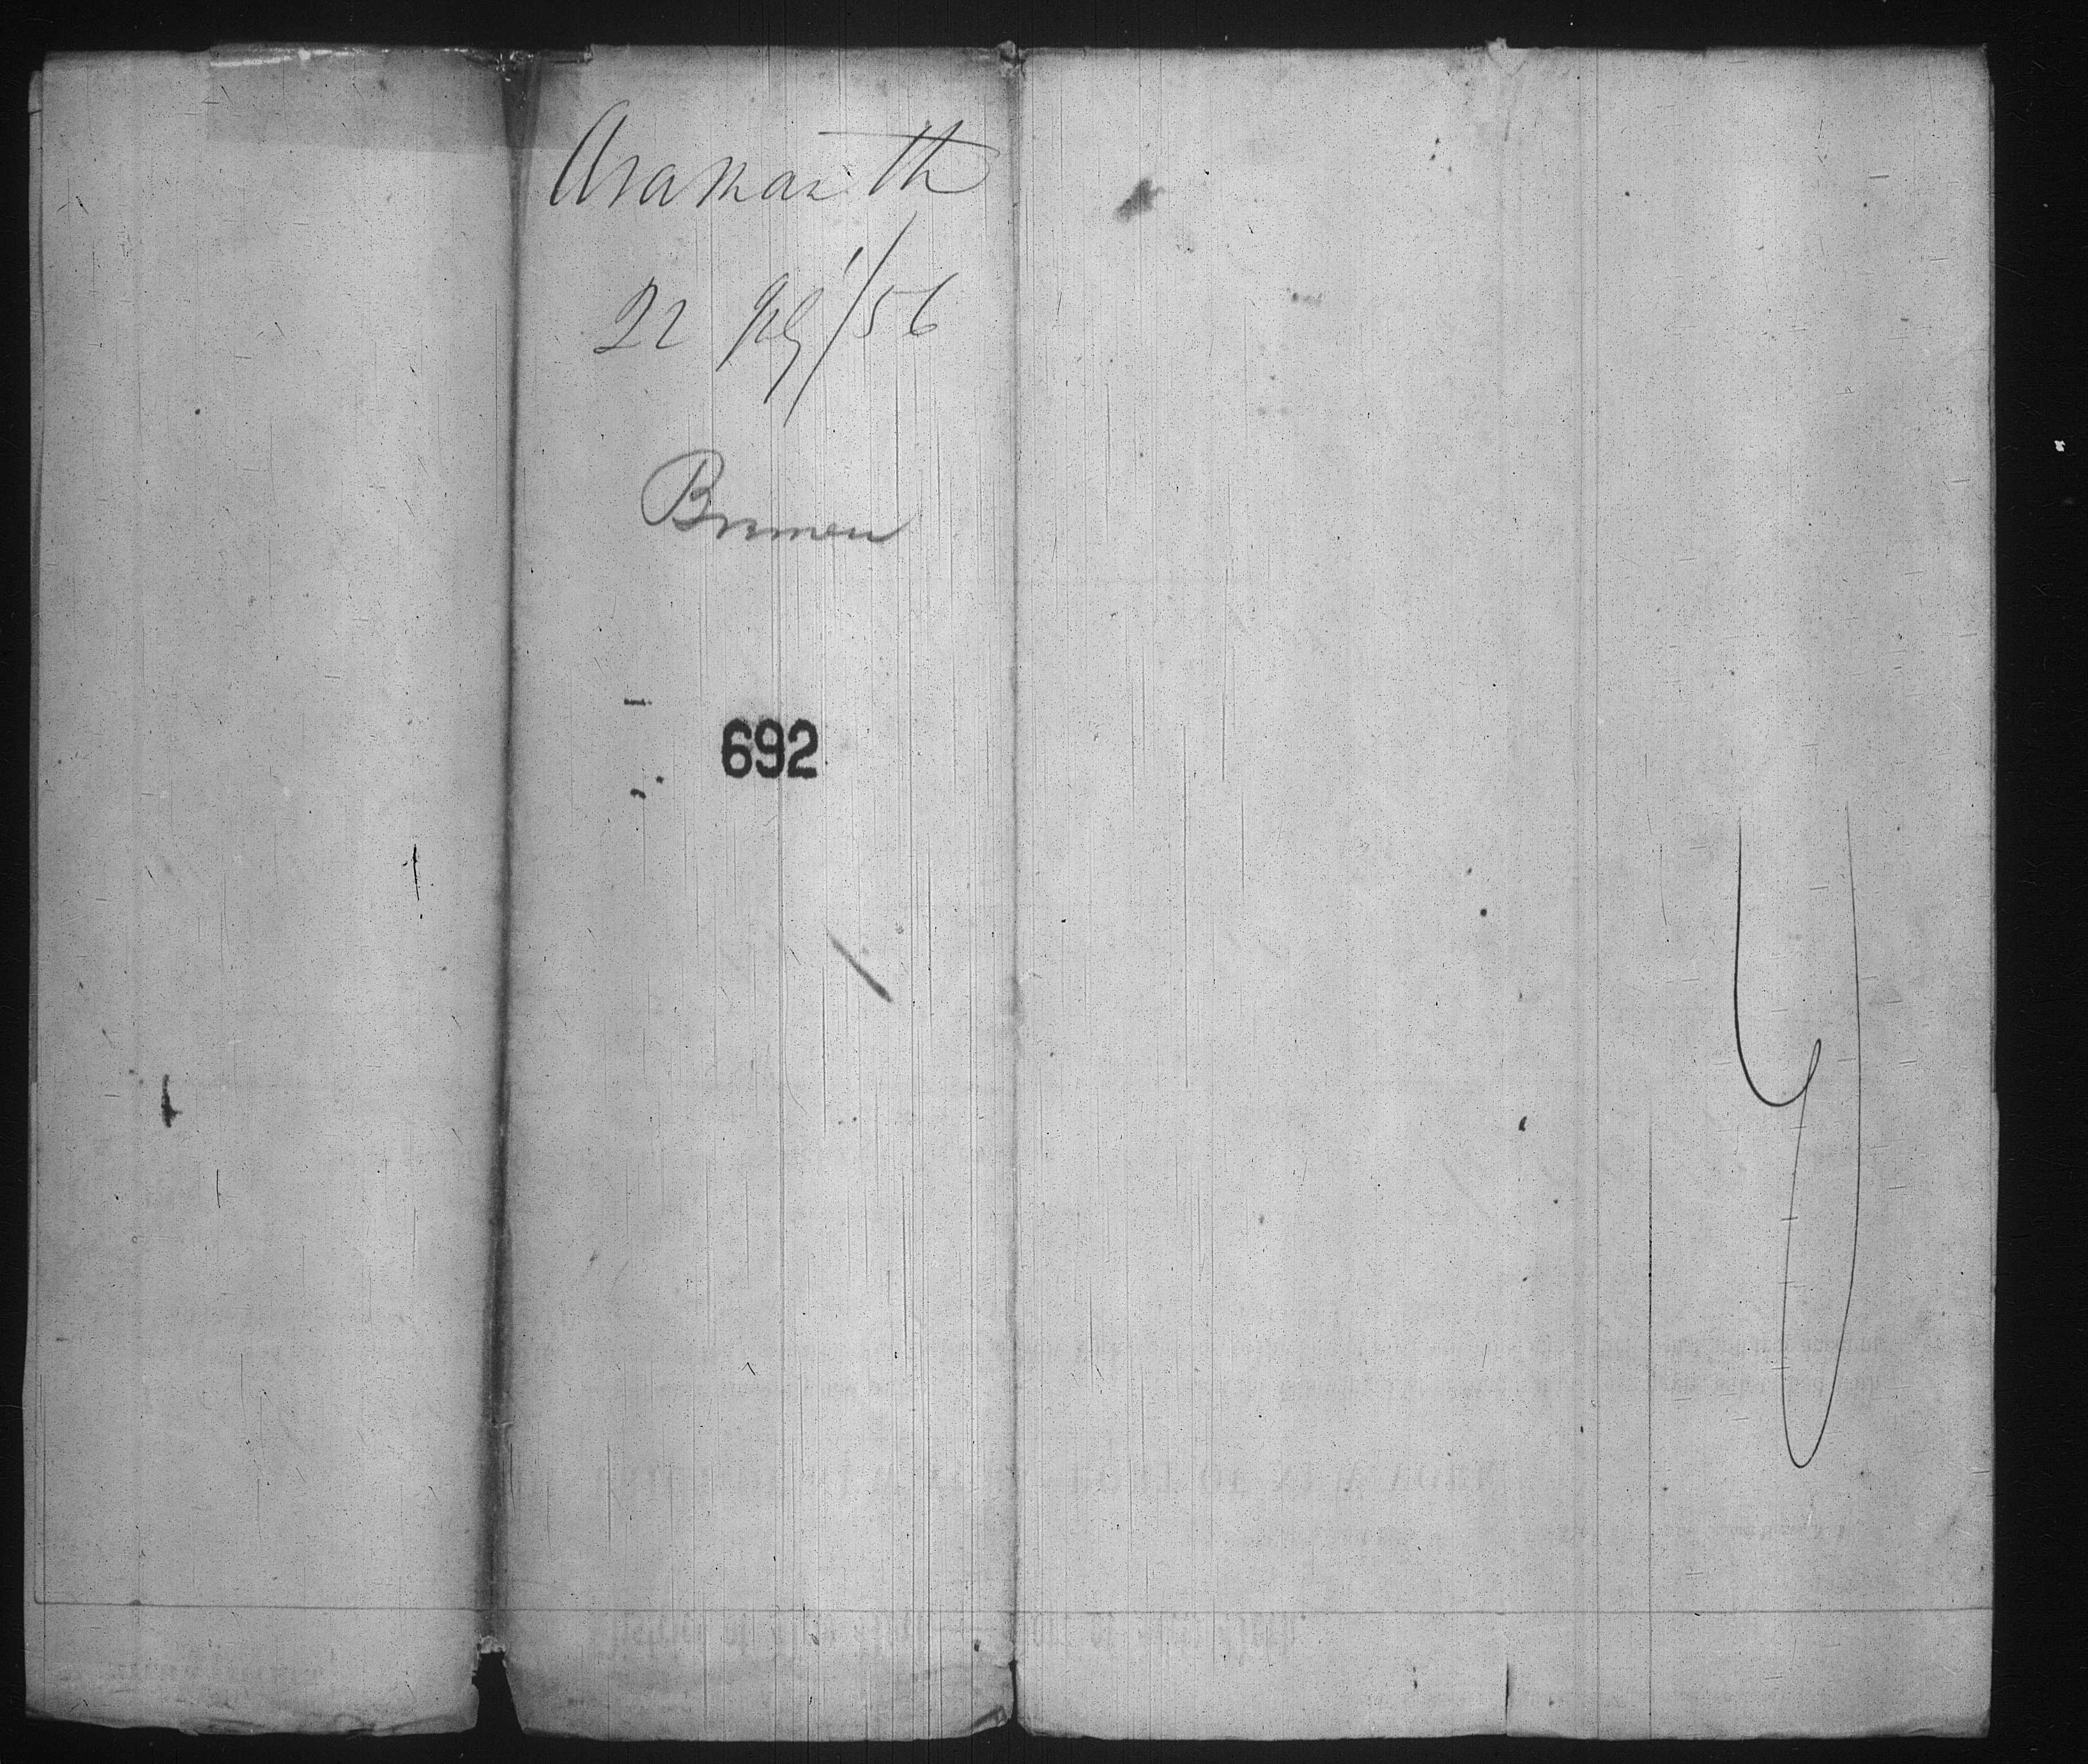 Aramanth
22 Jly '/56
Bremen
692